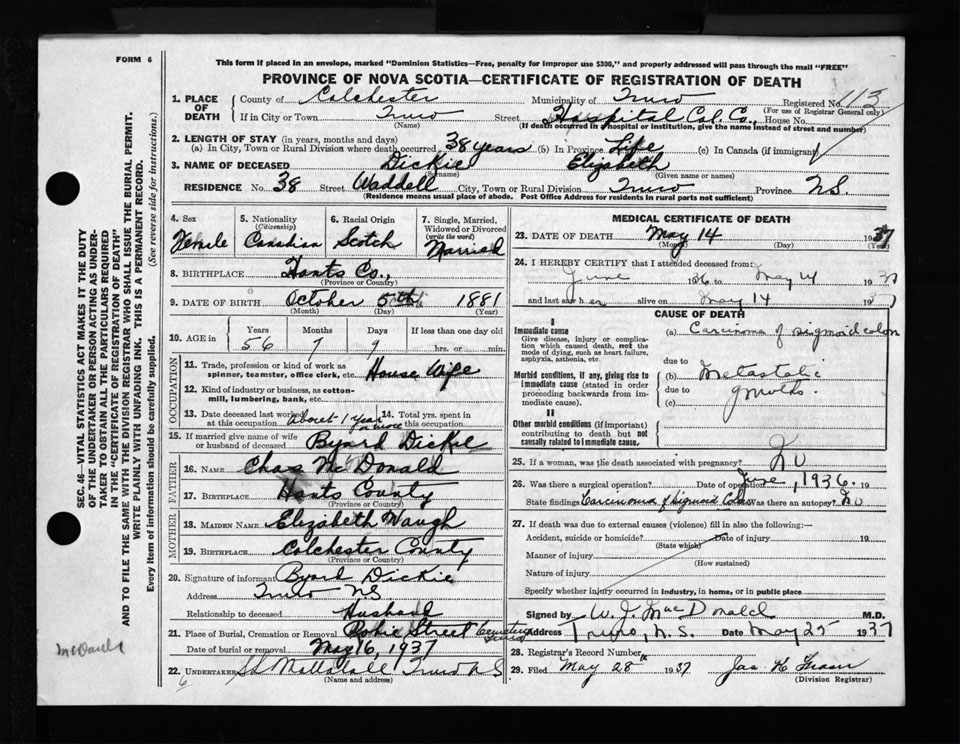 FORM 6
This form if placed in an envelope, marked "Dominion Statistics—Free, penalty for improper use $300," and properly addressed will pass through the mail "FREE"
PROVINCE OF NOVA SCOTIA—CERTIFICATE OF REGISTRATION OF DEATH
1. PLACE OF DEATH County of Colchester Municipality of Truro Registered No. 113
(For use of Registrar General only)
If in City or Town Truro Street Hospital Col. Co., House No.
(Name) (If death occurred in hospital or institution, give the name instead of street and number)
2. LENGTH OF STAY (in years, months and days)
(a) In City, Town or Rural Division where death occurred 38 years (b) In Province Life (c) In Canada (if immigrant)
3. NAME OF DECEASED Dickie Elizabeth
(Surname) (Given name or names)
RESIDENCE No. 38 Street Waddell City, Town or Rural Division Truro Province N.S.
(Residence means usual place of abode. Post Office Address for residents in rural parts not sufficient)
4. Sex 5. Nationality 6. Racial Origin 7. Single, Married, Widowed or Divorced
(Citizenship) (write the word)
Female Canadian Scotch Married
8. BIRTHPLACE Hants Co.,
(Province or Country)
9. DATE OF BIRTH October 5th 1881
(Month) (Day) (Year)
10. AGE in Years Months Days If less than one day old
56 7 9 hrs. or min.
OCCUPATION
11. Trade, profession or kind of work as spinner, teamster, office clerk, etc. House Wife
12. Kind of industry or business, as cotton-mill, lumbering, bank, etc.
13. Date deceased last worked at this occupation About 1 year or more 14. Total yrs. spent in this occupation
15. If married give name of wife or husband of deceased Byard Dickie
FATHER
16. NAME Chas McDonald
17. BIRTHPLACE Hants County
(Province or Country)
MOTHER
18. MAIDEN NAME Elizabeth Waugh
19. BIRTHPLACE Colchester County
(Province or Country)
20. Signature of informant Byard Dickie
Address Truro N.S.
Relationship to deceased Husband
21. Place of Burial, Cremation or Removal Robie Street Cemetery Truro
Date of burial or removal May 16, 1937
22. UNDERTAKER Truro N S
(Name and address)
MEDICAL CERTIFICATE OF DEATH
23. DATE OF DEATH May 14 1937
(Month) (Day) (Year)
24. I HEREBY CERTIFY that I attended deceased from
June 1936 to May 14 1937
and last saw her alive on May 14 1937
CAUSE OF DEATH
I
Immediate cause
Give disease, injury or complication which caused death, not the mode of dying, such as heart failure, asphyxia, asthenia, etc.
(a) Carcinoma of sigmoid colon
due to
Morbid conditions, if any, giving rise to immediate cause (stated in order proceeding backwards from immediate cause).
(b) Metastatic
due to growths.
(c)
II
Other morbid conditions (if important) contributing to death but not causally related to immediate cause.
25. If a woman, was the death associated with pregnancy? No
26. Was there a surgical operation? Date of operation June, 1936. 19
State findings Carcinoma of Sigmoid Colon Was there an autopsy? No
27. If death was due to external causes (violence) fill in also the following:—
Accident, suicide or homicide? Date of injury 19
(State which)
Manner of injury
(How sustained)
Nature of injury
Specify whether injury occurred in industry, in home, or in public place
Signed by W. J. MacDonald M.D.
Address Truro, N.S. Date May 25 1937
28. Registrar's Record Number
29. Filed May 28th 1937 Jas K Fraser
(Division Registrar)
SEC. 46—VITAL STATISTICS ACT MAKES IT THE DUTY
OF THE UNDERTAKER OR PERSON ACTING AS UNDER-
TAKER TO OBTAIN ALL THE PARTICULARS REQUIRED
IN THE "CERTIFICATE OF REGISTRATION OF DEATH"
AND TO FILE THE SAME WITH THE DIVISION REGISTRAR WHO SHALL ISSUE THE BURIAL PERMIT.
WRITE PLAINLY WITH UNFADING INK. THIS IS A PERMANENT RECORD.
Every item of information should be carefully supplied. (See reverse side for instructions.)